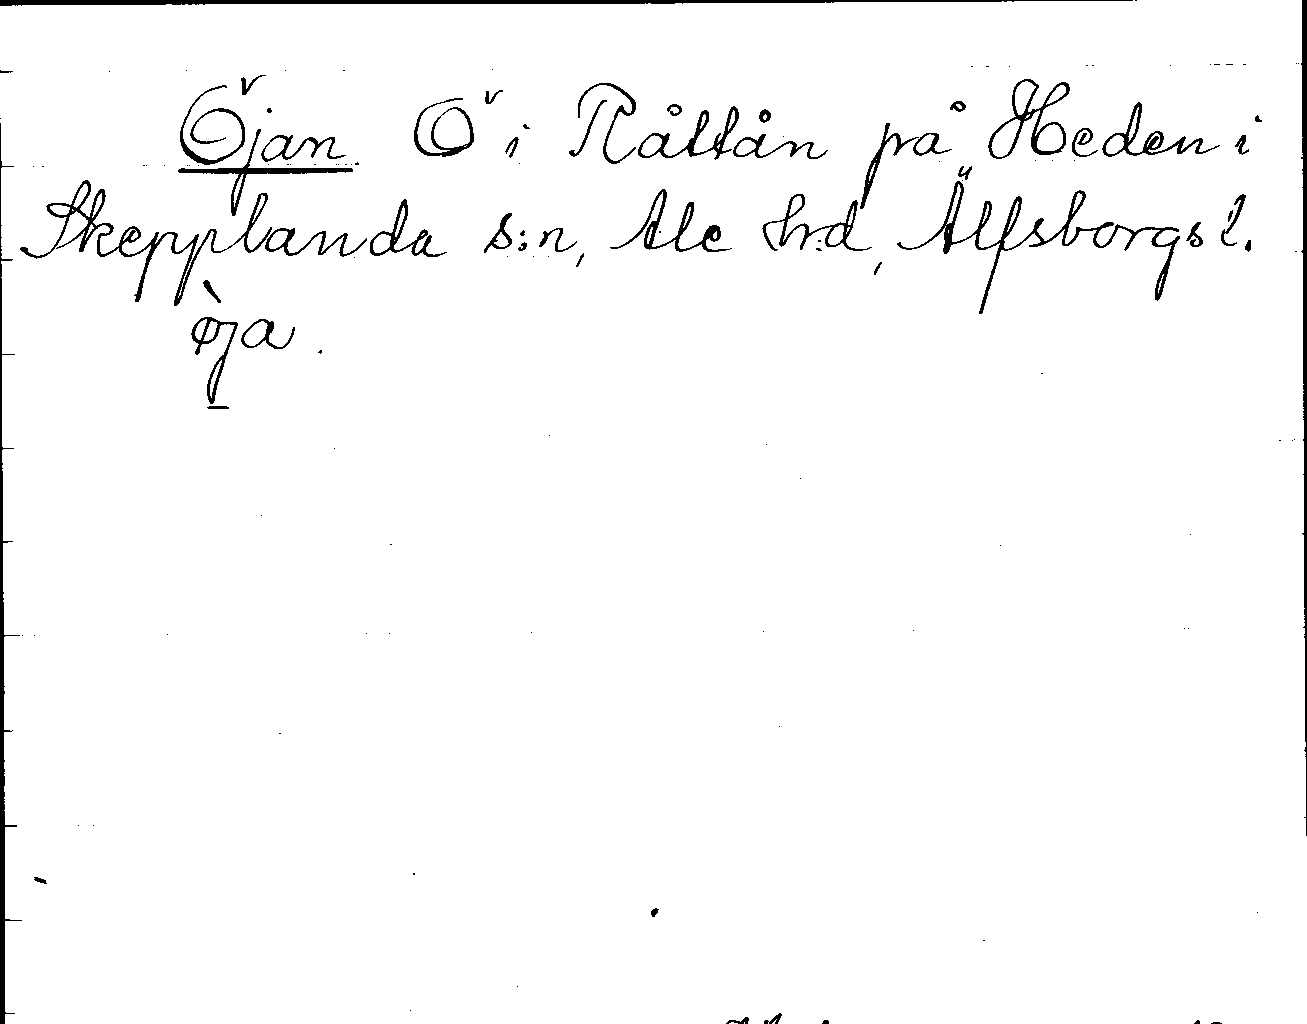 Öjan. Ö i Råttån på Heden i
Skepplanda s:n, Ale hrd, Älfsborgs l.
ø̀ja.